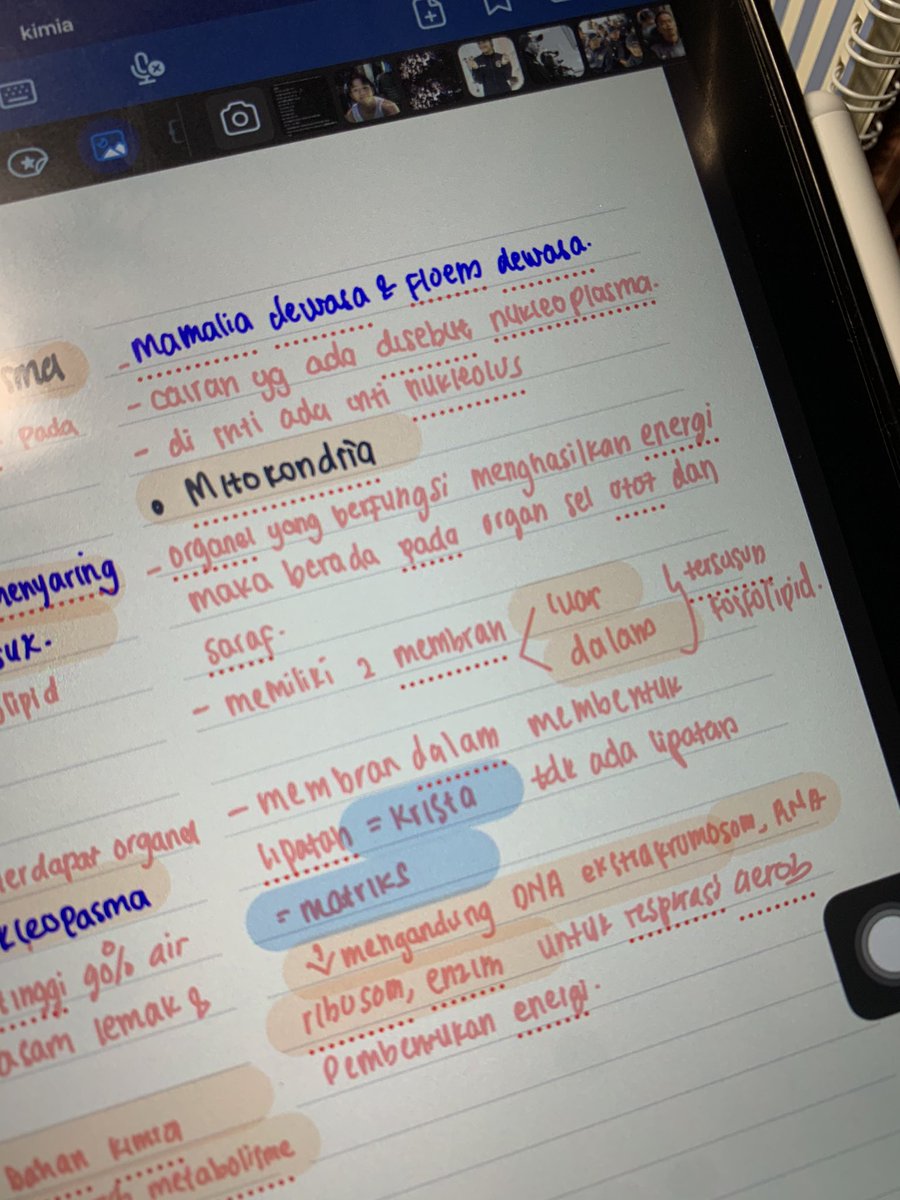 kimia
- Mamalia dewasa & Floem dewasa.
- cairan yg ada disebut nukleoplasma.
- di inti ada inti nukleolus
• Mitokondria
- organel yang berfungsi menghasilkan energi
maka berada pada organ sel otot dan
saraf.
- memiliki 2 membran < luar
dalam
tersusun
fosfolipid.
- membran dalam membentuk
lipatan = krista
tdk ada lipatan
= matriks
↳ mengandung DNA ekstrakrumosom, RNA
ribusom, enzim untuk respirasi aerob
Pembentukan energi.
pada
menyaring
lipid
terdapat organel
tinggi 90% air
asam lemak &
bahan kimia
metabolisme